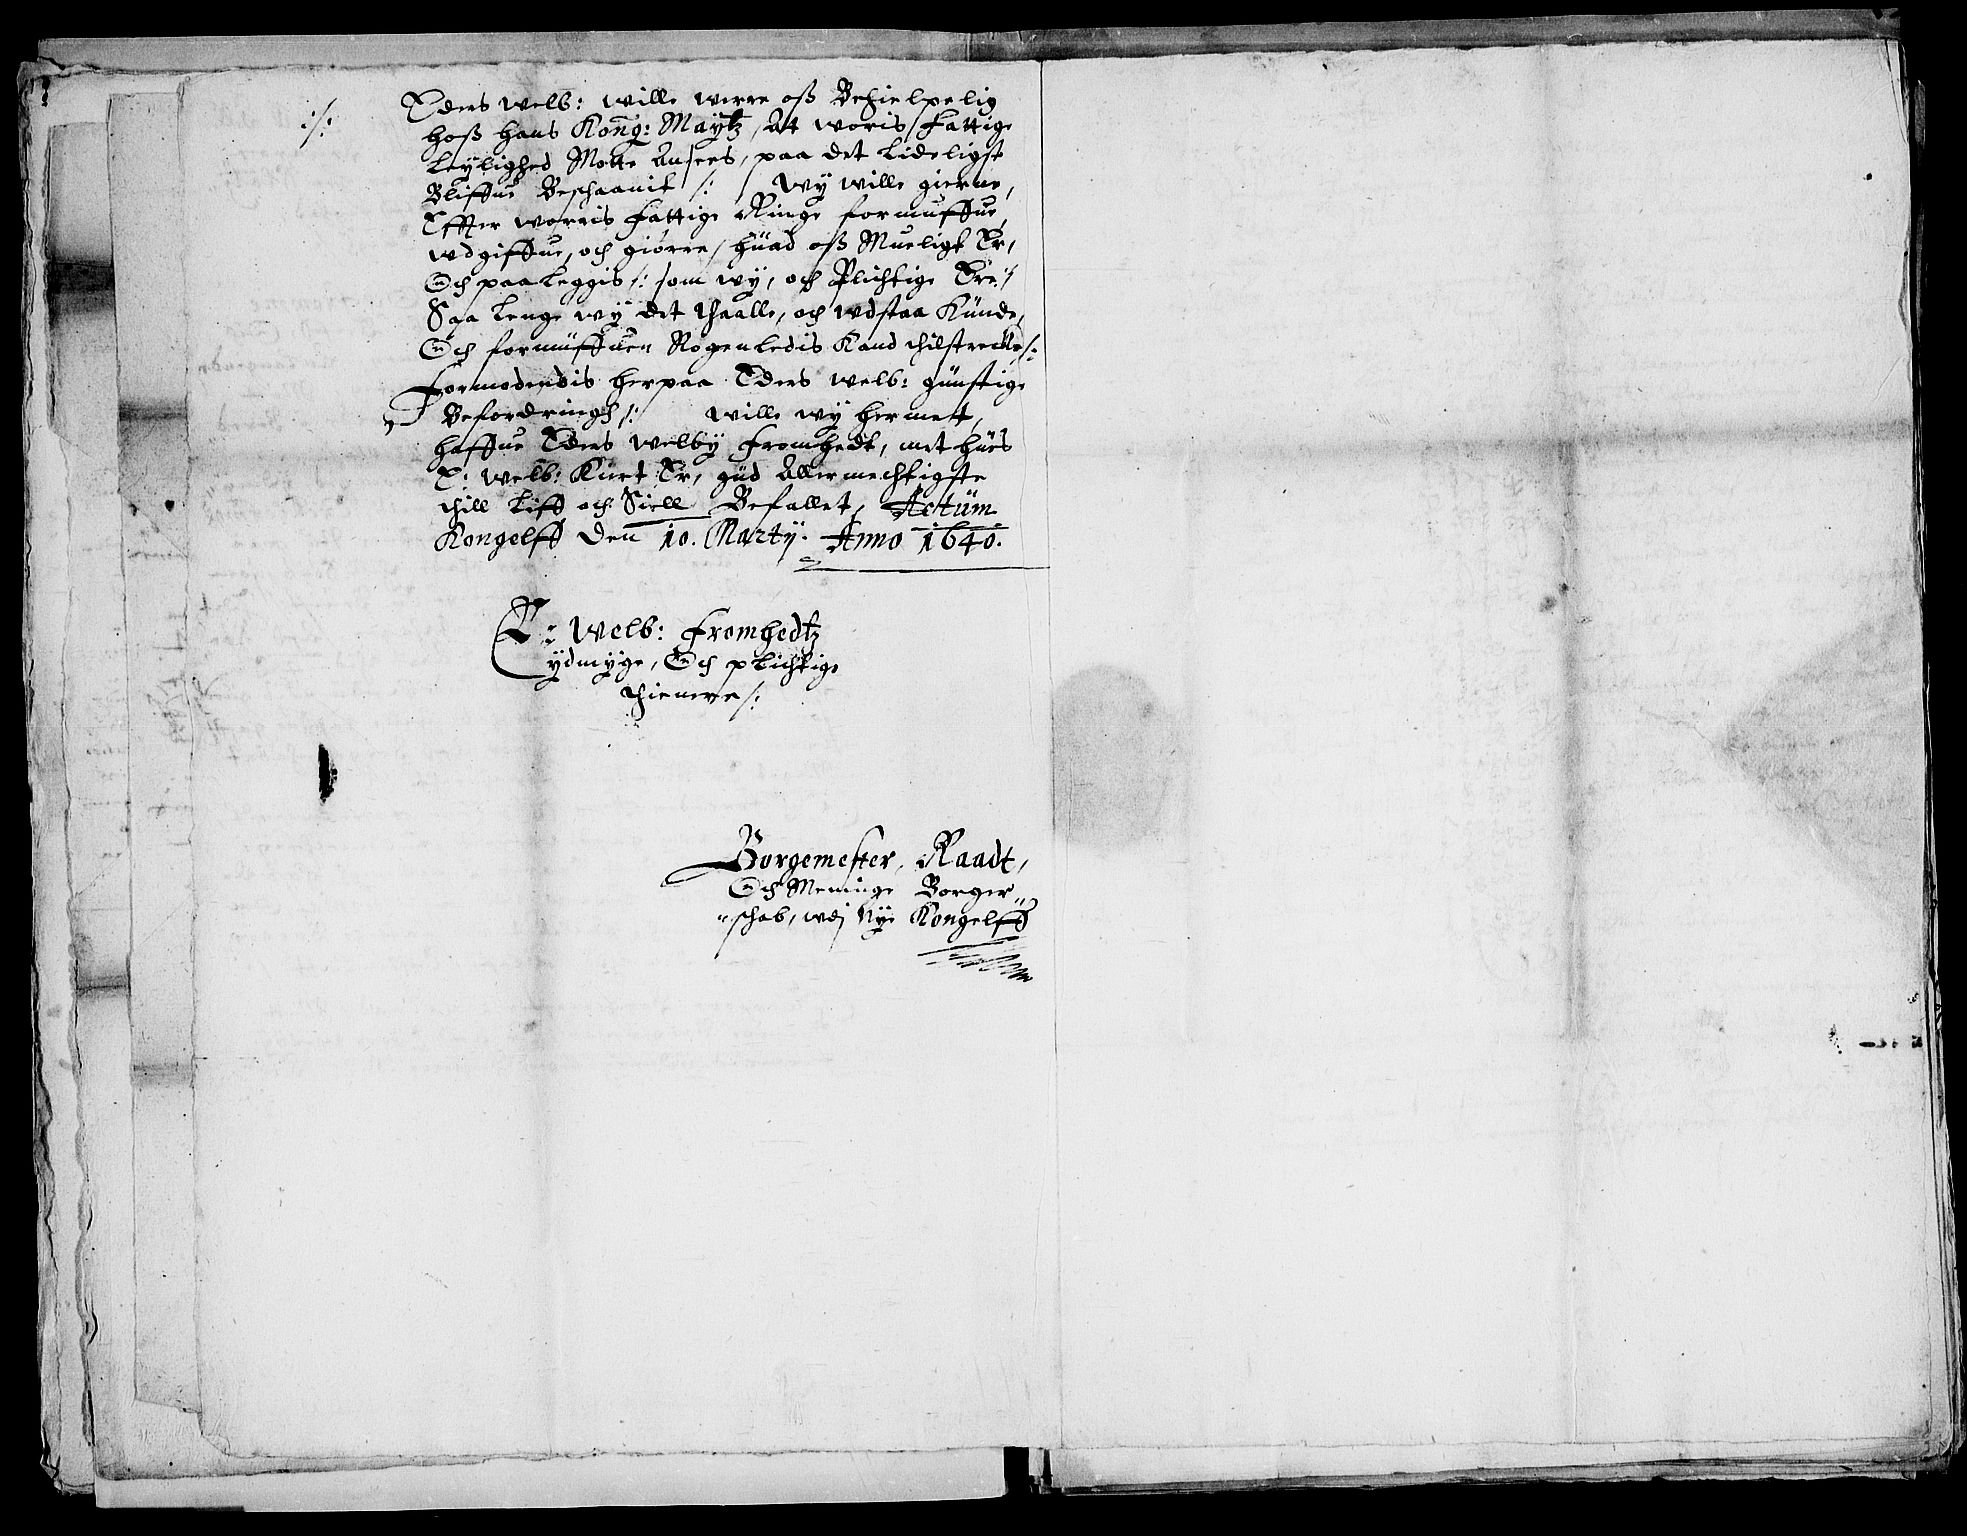 ./:
Eders welb: wille werre oß Behielpelig
hoß hans Konng: Maytz, At woris fattige
Leylighed Motte Ansees, paa det Lideligst
Bliffue Beschaanit /: Wy wille gierne,
Effter worris fattige Ringe formuffue,
wdgiffue, och giörre, huad oß Mueligt Er,
Och paa Leggis /: som wy, och Plichtige Ere /:
Saa Lenge wy det thaalle, och wdstaa Künde,
Och formüffuen Nogenledis Kand thilstrecke /:
Formodendis herpaa Eders welb: günstige
Befordringh /: wille wy hermet,
haffue Eders welby fromhedt, met hües
E: welb: Kiert Er, güd Allermechtigste
thill Liff och Siell Befallet, Actüm
Kongelff Den 10. Marty. Anno 1640.
E: Welb: fromhedtz
ydmyge, Och plichtige
thienere /:
Borgemester, Raadt,
Och Meninge Borger"
"schab, wdj Nye Kongelff